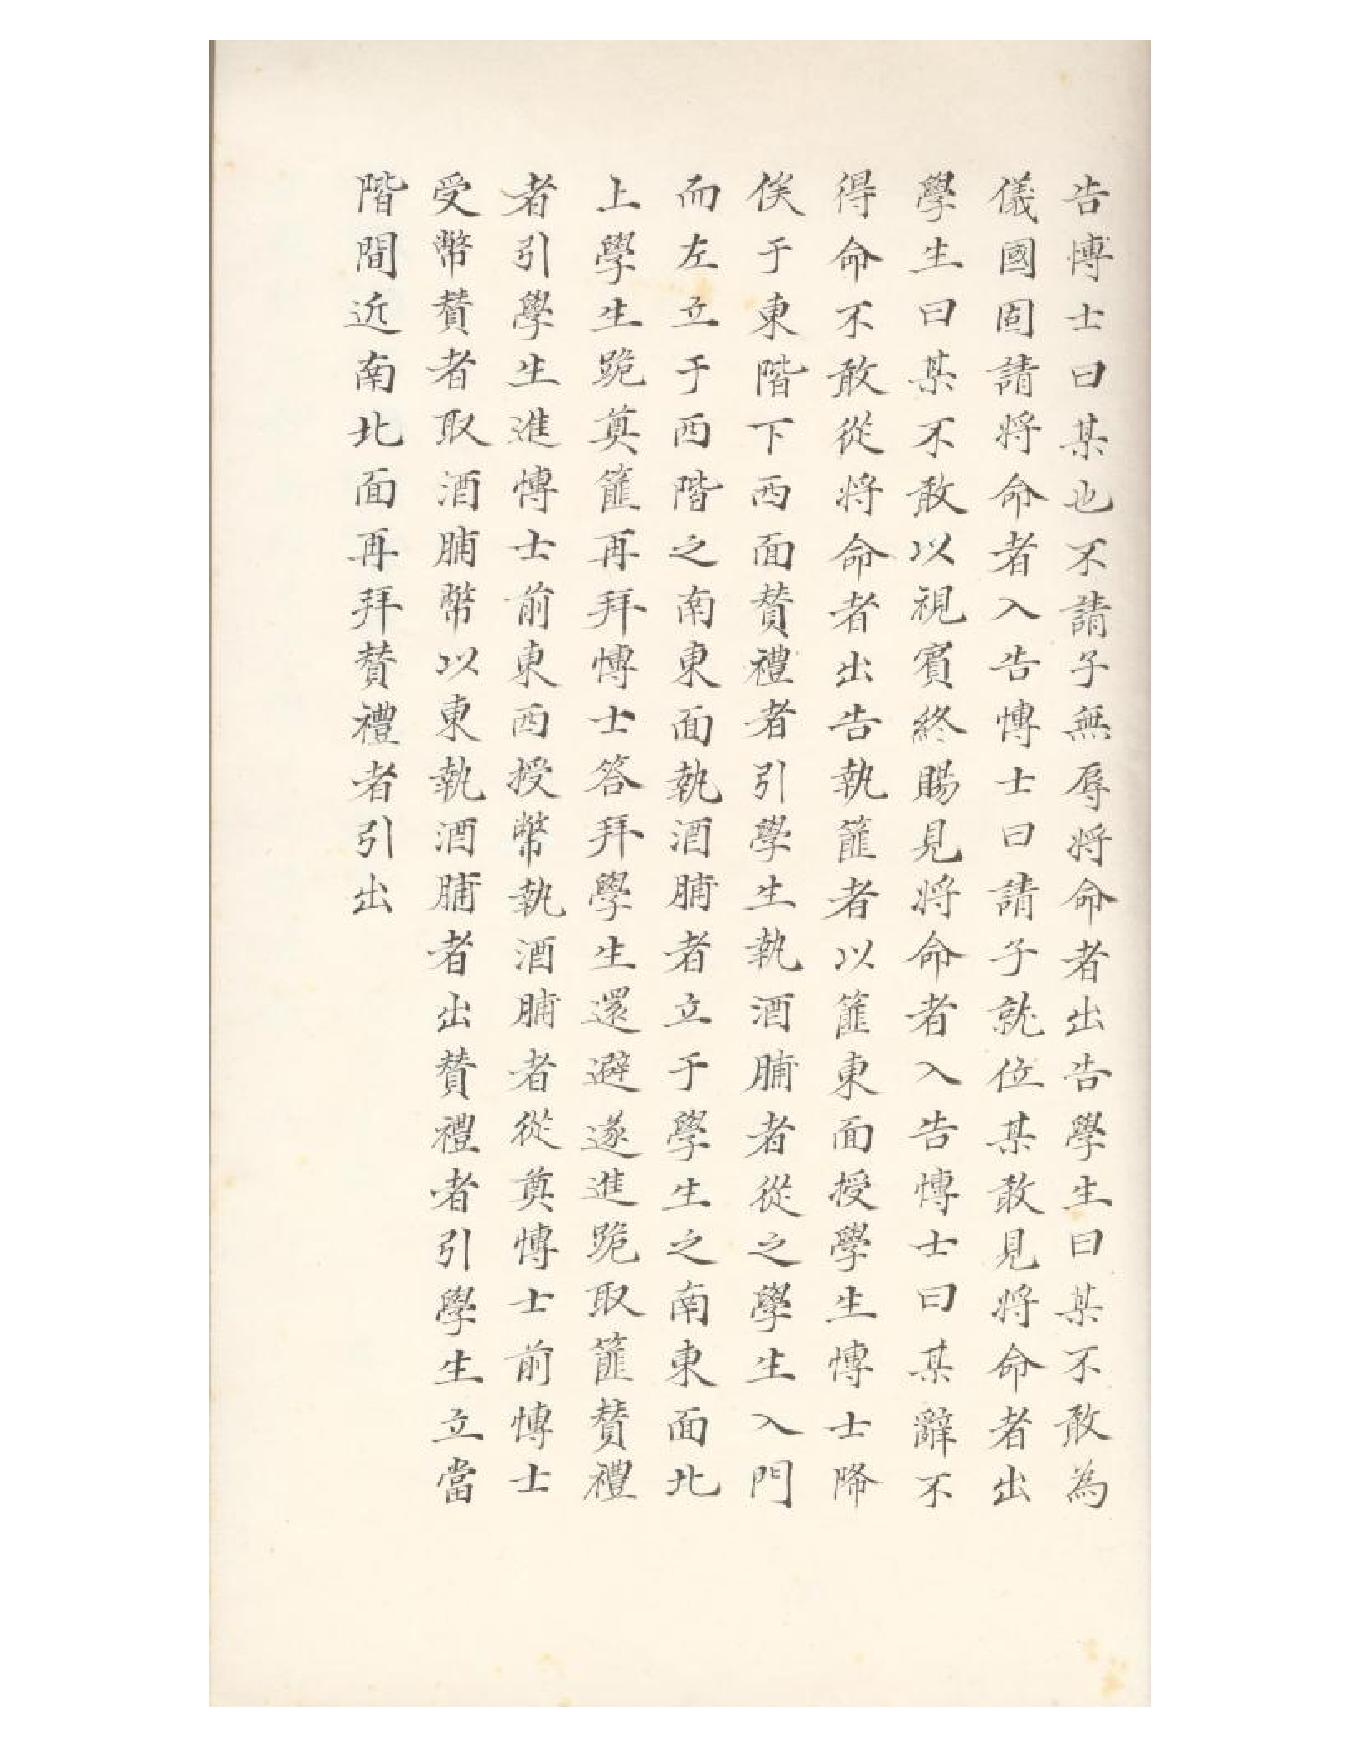 告博士曰某也不請子無辱將命者出告學生曰某不敢為
儀國固請將命者入告博士曰請子就位某敢見將命者出
學生曰某不敢以視賓終賜見將命者入告博士曰某辭不
得命不敢從將命者出告執篚者以篚東面授學生博士降
俟于東階下西面贊禮者引學生執酒脯者從之學生入門
而左立于西階之南東面執酒脯者立于學生之南東面北
上學生跪奠篚再拜博士答拜學生還避遂進跪取篚贊禮
者引學生進博士前東西授幣執酒脯者從奠博士前博士
受幣贊者取酒脯幣以東執酒脯者出贊禮者引學生立當
階間近南北面再拜贊禮者引出